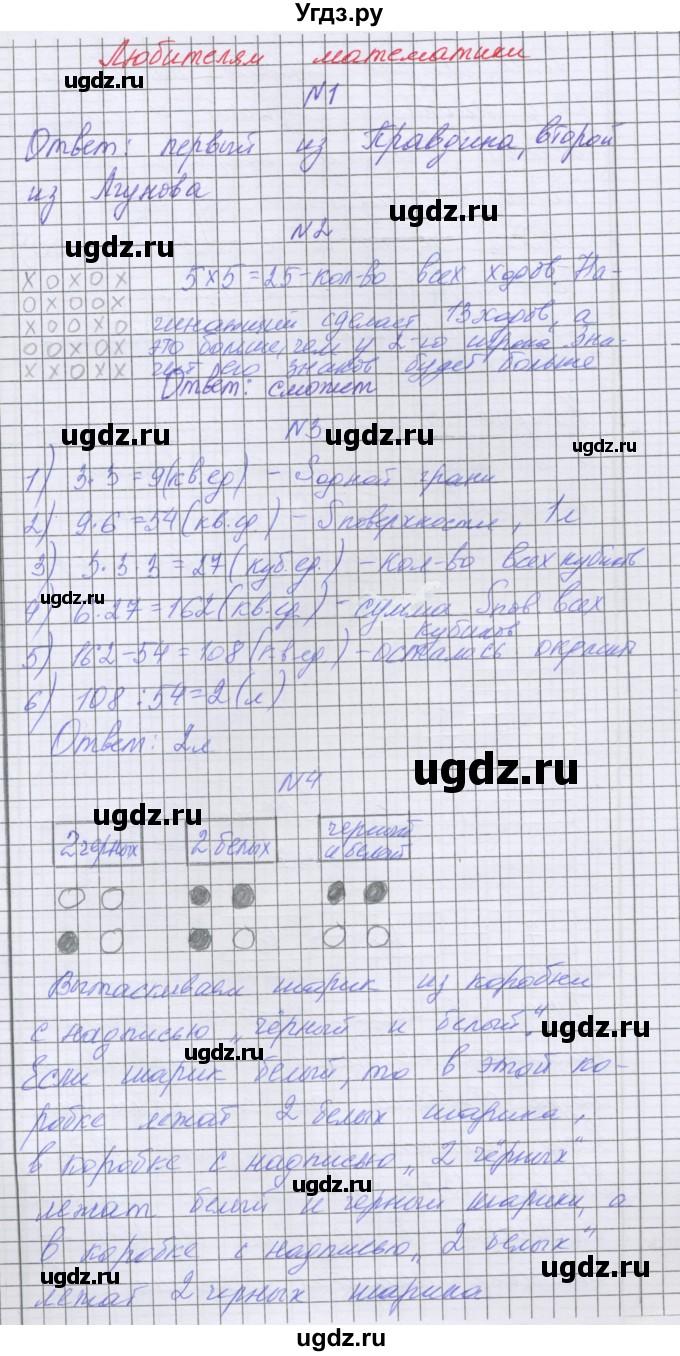 Угдз.ру
Любителям математики
ugdz.ru
N1
Ответ: первый из Правдина, второй
из Лгунова
ugdz.ru
N2
ugdz.ru
X O X O X 5×5=25-кол-во всех ходов. На-
O X O X X
X O O X O чинающий сделает 13 ходов, а
O O X O X это больше, чем у 2-го игрока. Зна-
X X O X X чит его знаков будет больше
Ответ: сможет
ugdz.ru N3 ugdz.ru ugdz.ru
1) 3·3=9(кв.ед) - Sодной грани
2) 9·6=54(кв.ед) - Sповерхности, 1л
3) 3·3·3=27(куб.ед.) - кол-во всех кубиков
ugdz.ru
4) 6·27=162(кв.ед) - сумма Sпов всех
кубиков
5) 162-54=108(кв.ед) - осталось окрасить
6) 108:54=2(л)
Ответ: 2л
ugdz.ru
N4
ugdz.ru
2 чёрных 2 белых черный
и белый
Вытаскиваем шарик из коробки
с надписью „чёрный и белый".
ugdz.ru ugdz.ru
Если шарик белый, то в этой ко-
робке лежат 2 белых шарика,
в коробке с надписью „2 чёрных"
ugdz.ru
лежат белый и черный шарики, а
в коробке с надписью „2 белых"
ugdz.ru ugdz.ru
лежат 2 черных шарика
ugdz.ru